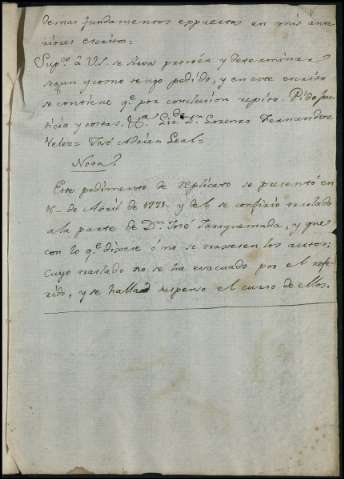 demas fundamentos expuestos en mis ante-
riores escritos:
Sup.co á VS. se sirva proveér y determinar
segun y como tengo pedido, y en este escrito
se contiene q.e por conclusion repito. Pido jus-
ticia y costas, &.a Lic.do D.n Lorenzo Fernandez
Velez = José Adrian Leal =
Nota.
Este pedimento de replicato se presentó en
de Abril de 1771. y de él se confirió traslado
a la parte de D.n José Taragamada, y que
con lo q.e dixere ó no se traxesen los autos;
cuyo traslado no se ha evacuado por el refe-
rido, y se halla suspenso el curso de ellos.